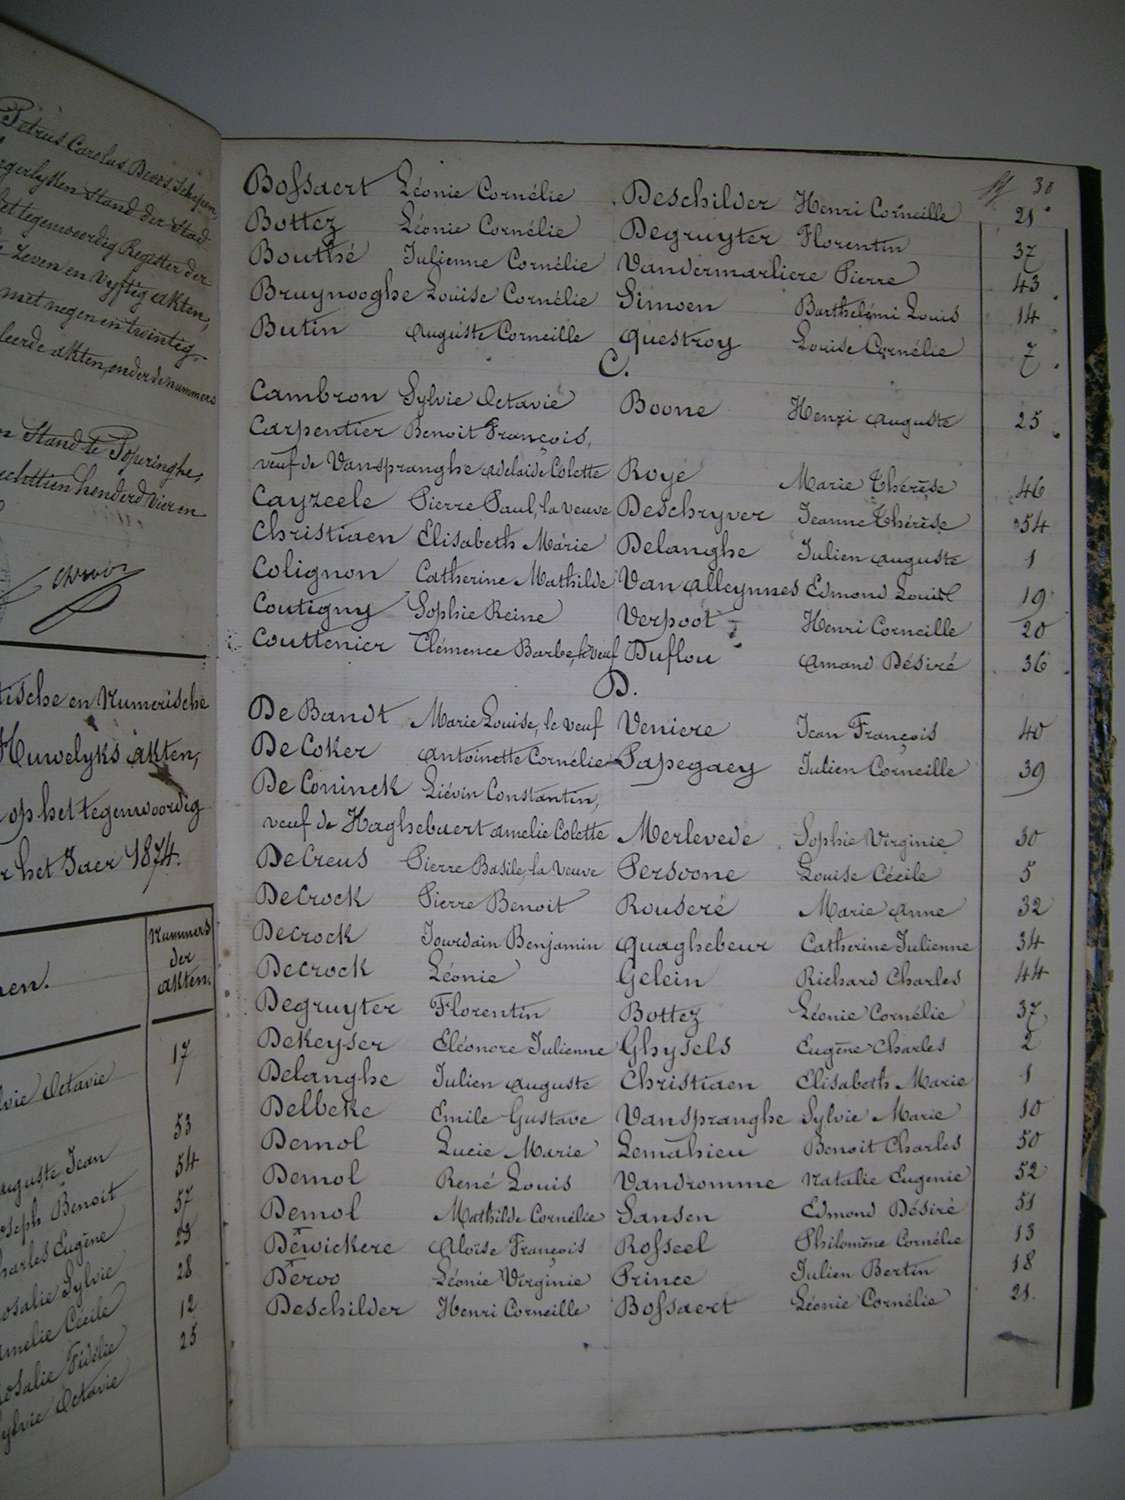 Petrus Carolus
Stand der Stad
het tegenwoordig Register der
Zeven en vyftig akten,
met negen en twintig
akten, onder de nummers
Stand te Poperinghe,
achttien honderd vier en
en Numerische
Huwelyks akten,
op het tegenwoordig
het Jaer 1874.
Nummers
der
akten.
Octavie 17
53
auguste Jean 54
Joseph Benoit 57
Charles Eugène 29
Rosalie Sylvie 28
amelie Cécile 12
Rosalie Fidélie 25
Sylvie Octavie
30
Bossaert Léonie Cornélie Deschilder Henri Corneille 21
Bottez Léonie Cornélie Degruyter Florentin 37
Bouthé Julienne Cornélie Vandermarliere Pierre 43
Bruynooghe Louise Cornélie Simoen Barthelémi Louis 14
Butin auguste Corneille Questroy Louise Cornélie 7
C.
Cambron Sylvie Octavie Boone Henri auguste 25
Carpentier Benoit François,
veuf de Vanspranghe adelaide Colette Roye Marie Thérèse 46
Cayzeele Pierre Paul, la veuve Deschryver Jeanne Thérèse 54
Christiaen Elisabeth Marie Delanghe Julien auguste 1
Colignon Catherine Mathilde Van alleynnes Edmond Louis 19
Coutigny Sophie Reine Verpoot Henri Corneille 20
Couttenier Clémence Barbe, le veuf Duflou amand Désiré 36
D.
De Bandt Marie Louise, le veuf Veniere Jean François 40
De Coker antoinette Cornélie Papegaey Julien Corneille 39
De Coninck Liévin Constantin,
veuf de Haghebaert amelie Colette Merlevede Sophie Virginie 30
DeCreus Pierre Basile, la Veuve Persoone Louise Cécile 5
DeCrock Pierre Benoit Rouseré Marie anne 32
Decrock Jourdain Benjamin Quaghebeur Catherine Julienne 34
Decrock Léonie Gelein Richard Charles 44
Degruyter Florentin Bottez Léonie Cornélie 37
Dekeyser Eléonore Julienne Ghysels Eugène Charles 2
Delanghe Julien auguste Christiaen Elisabeth Marie 1
Delbeke Emile Gustave Vanspranghe Sylvie Marie 10
Demol Lucie Marie Lemahieu Benoit Charles 50
Demol René Louis Vandromme Natalie Eugenie 52
Demol Mathilde Cornélie Sansen Edmond Désiré 51
Dewickere Aloïse François Rosseel Philomène Cornélie 13
Deroo Léonie Virginie Prince Julien Bertin 18
Deschilder Henri Corneille Bossaert Léonie Cornélie 21.